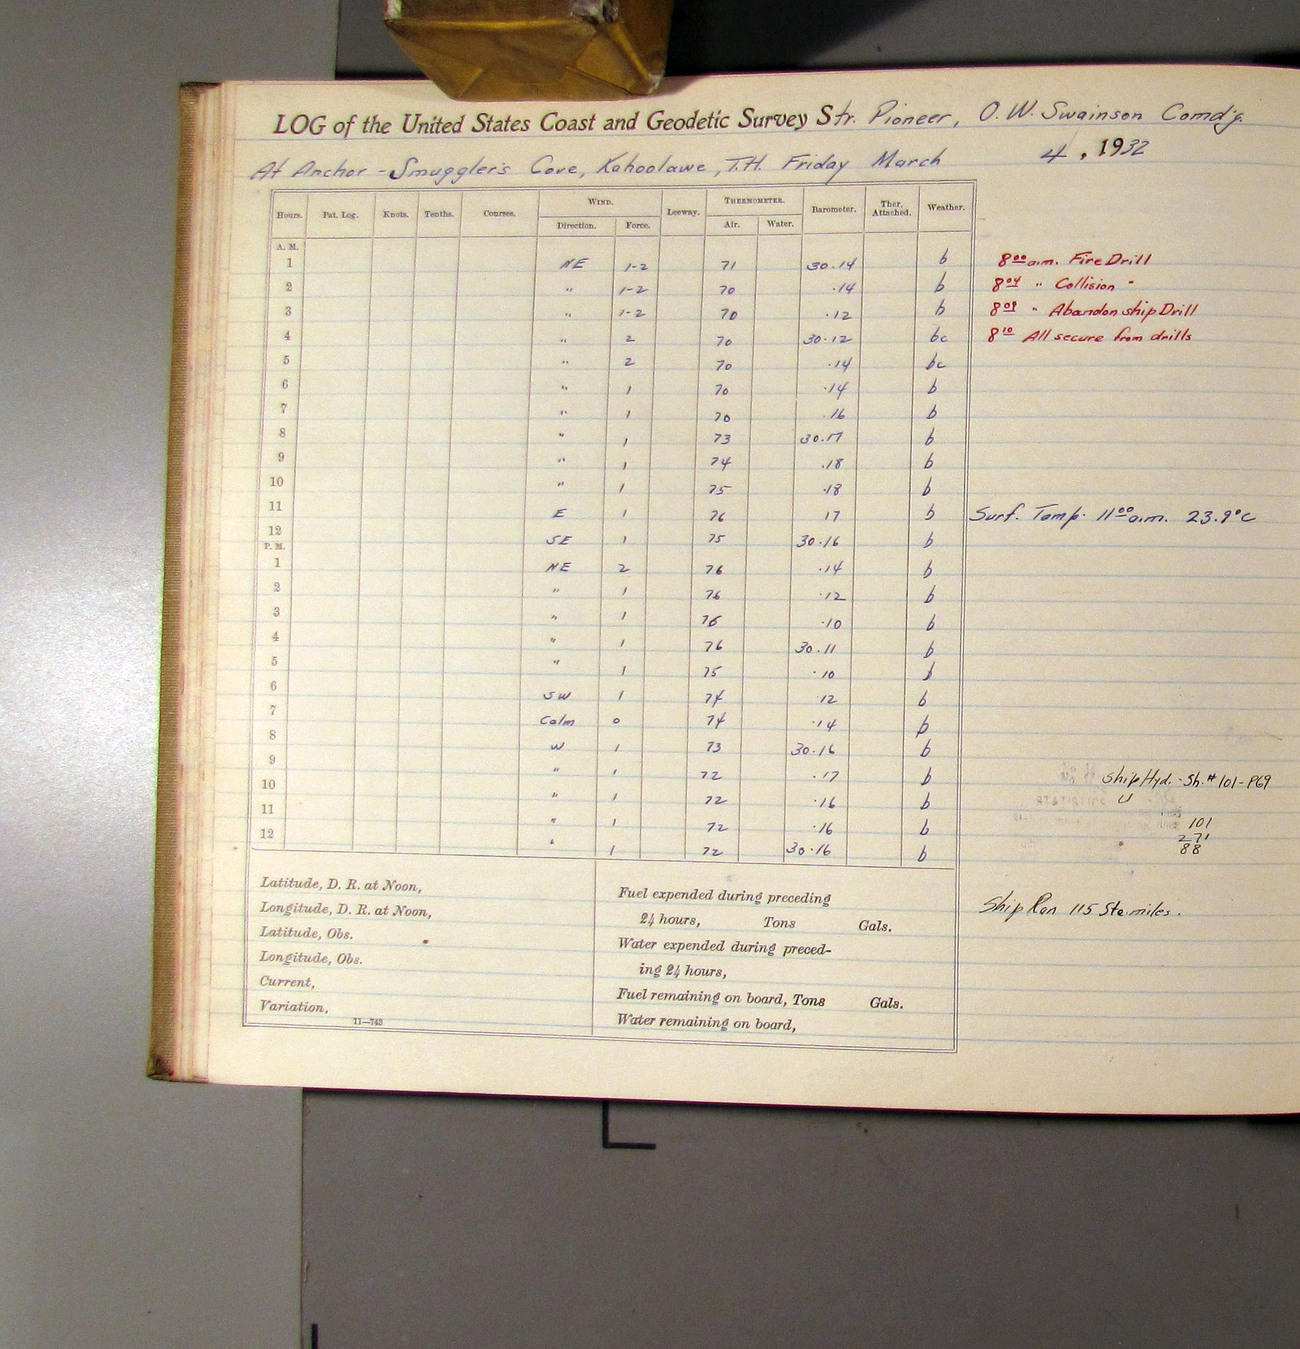 LOG of the United States Coast and Geodetic Survey Str. Pioneer, O. W. Swainson Comd'g.
At Anchor - Smuggler's Cove, Kahoolawe, T.H. Friday March 4, 1932
Hours. Pat. Log. Knots. Tenths. Courses. WIND. Leeway. THERMOMETER. Barometer. Ther. Attached. Weather.
Direction. Force. Air. Water.
A. M.
1 NE 1-2 71 30.14 b 8 00 a.m. Fire Drill
2 " 1-2 70 .14 b 8 04 " Collision "
3 " 1-2 70 .12 b 8 09 " Abandon ship Drill
4 " 2 70 30.12 bc 8 10 All secure from drills
5 " 2 70 .14 bc
6 " 1 70 .14 b
7 " 1 70 .16 b
8 " 1 73 30.17 b
9 " 1 74 .18 b
10 " 1 75 .18 b
11 E 1 76 17 b Surf. Temp. 11 00 a.m. 23.9°C
12 SE 1 75 30.16 b
P. M.
1 NE 2 76 .14 b
2 " 1 76 .12 b
3 " 1 76 .10 b
4 " 1 76 30.11 b
5 " 1 75 .10 b
6 SW 1 74 12 b
7 Calm 0 74 .14 b
8 W 1 73 30.16 b
9 " 1 72 .17 b Ship Hyd. - Sh. # 101-P69
10 " 1 72 .16 b
11 " 1 72 .16 b 101
271
12 " 1 72 30.16 b 88
Latitude, D. R. at Noon,
Longitude, D. R. at Noon,
Latitude, Obs.
Longitude, Obs.
Current,
Variation,
11—743
Fuel expended during preceding
24 hours, Tons Gals.
Water expended during preced-
ing 24 hours,
Fuel remaining on board, Tons Gals.
Water remaining on board,
Ship Ran 115 Sta miles.